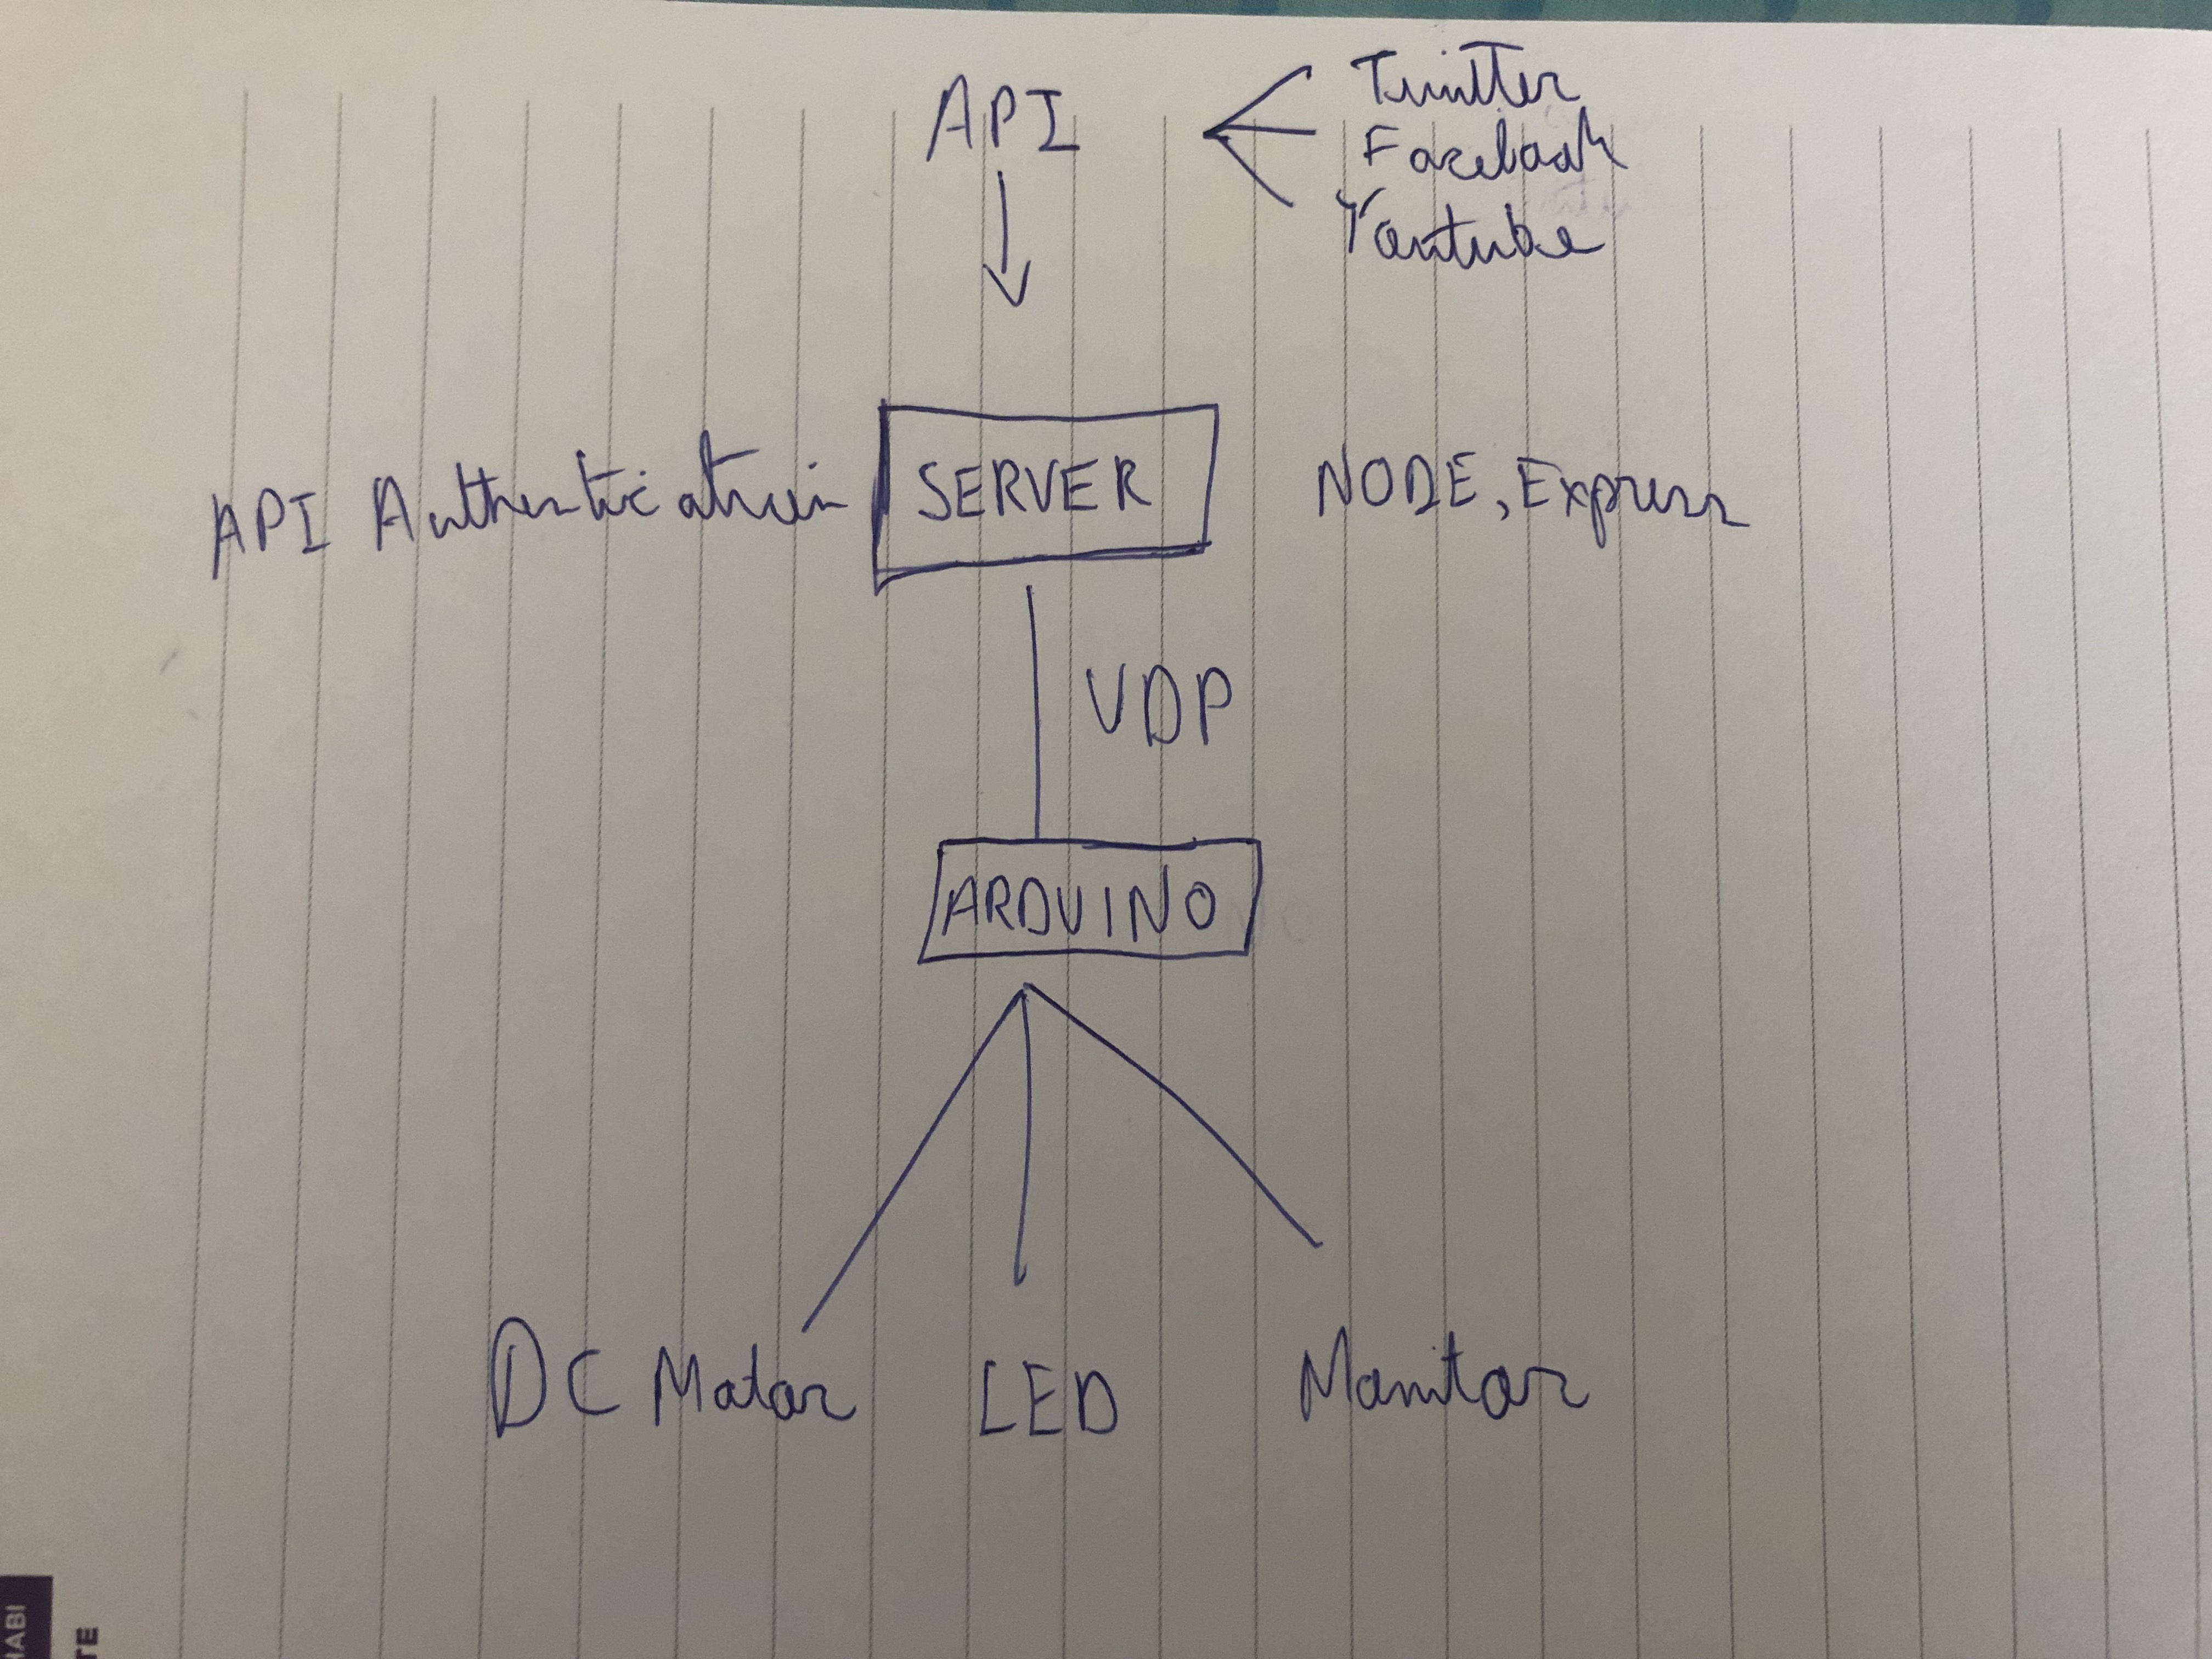 API
Twitter
Facebook
Youtube
API Authentication
SERVER
NODE, Express
UDP
ARDUINO
DC Motor
LED
Monitor